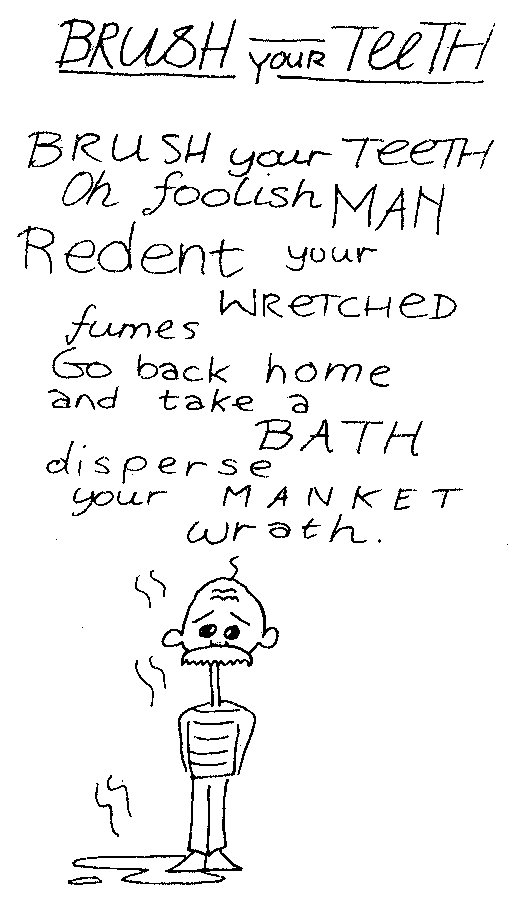 BRUSH YOUR TEETH
BRUSH your TEETH
Oh foolish MAN
Redent your
WRETCHED
fumes
Go back home
and take a
BATH
disperse
your MANKET
wrath.